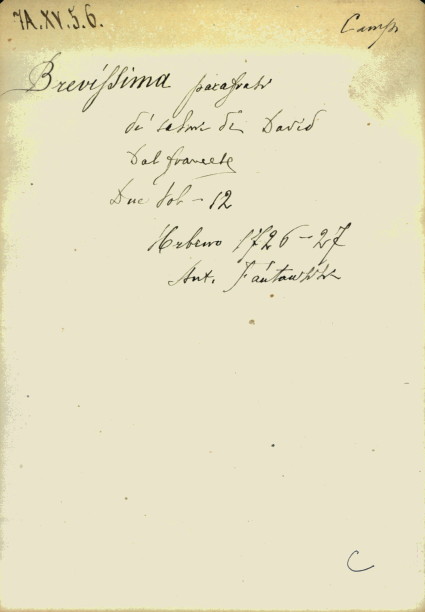 7A.XV.5.6.
Camp
Brevissima parafrasi
di salmi di David
Dal francese
Due Vol - 12
Urbino 1726-27
Ant.
C